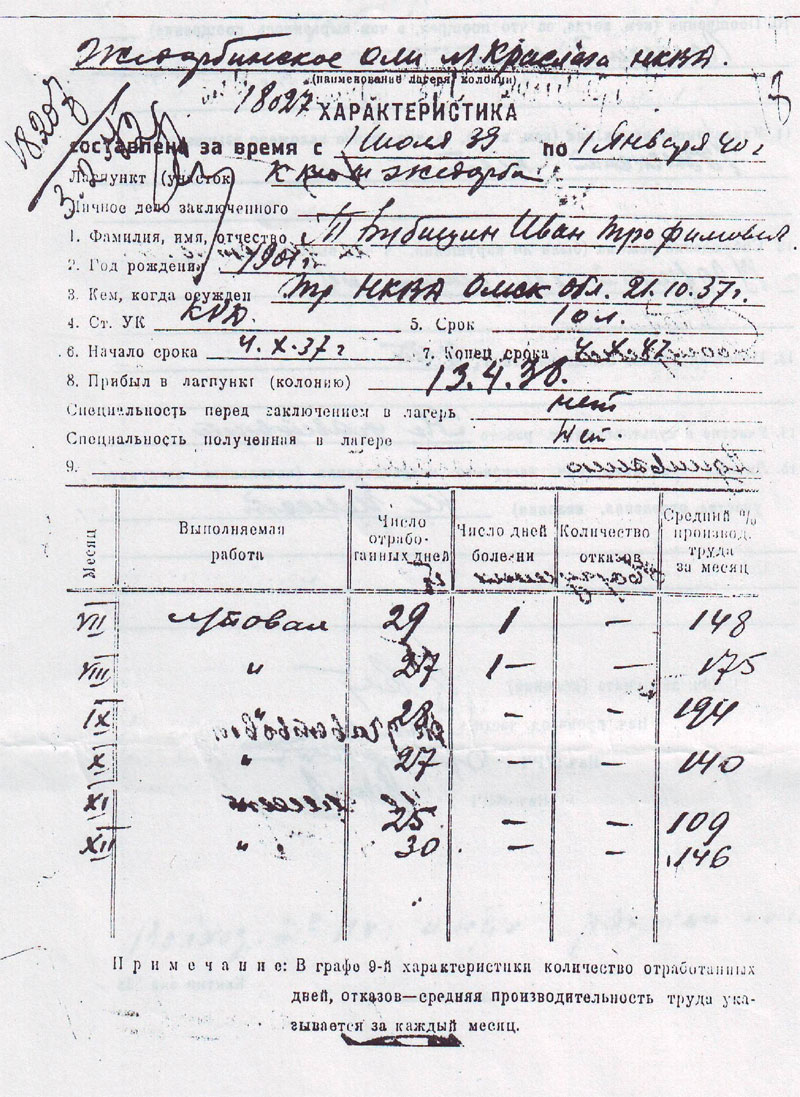 Жедорбинское олп Краслага НКВД.
(наименование лагеря, колонии)
18027
ХАРАКТЕРИСТИКА
18203
составлена за время с 1 Июля 39 по 1 Января 40 г
Лагпункт (участок) Жедорба
Личное дело заключенного
1. Фамилия, имя, отчество Иван Трофимович
2. Год рождения 1901 г.
3. Кем, когда осужден Тр НКВД Омск обл. 21.10.37 г.
4. Ст. УК КРД. 5. Срок 10 л.
6. Начало срока 4.X.37 г 7. Конец срока 4.X.47
8. Прибыл в лагпункт (колонию) 13.4.38.
Специальность перед заключением в лагерь нет
Специальность полученная в лагере Нет
9.
Месяц Выполняемая работа Число отрабо-танных дней Число дней болезни Количество отказов Средний % производ. труда за месяц
VII 29 1 — 148
VIII " 27 1 — — 175
IX " 28 — — 194
X " 27 — — 140
XI 25 — — 109
XII " 30 — — 146
Примечание: В графе 9-й характеристики количество отработанных
дней, отказов—средняя производительность труда ука-
зывается за каждый месяц.